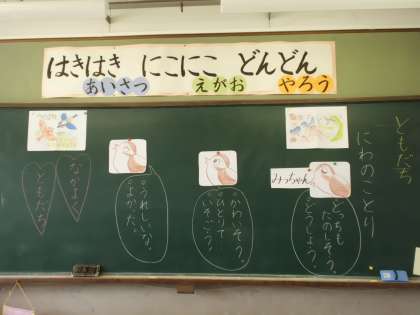 はきはき にこにこ どんどん
あいさつ えがお やろう
ともだち
にわのことり
みっちゃん
どっちも
たのしそう。
どうしよう。
かわいそう。
ひとりで
いそごう。
うれしいな。
よかった。
なかよし
ともだち